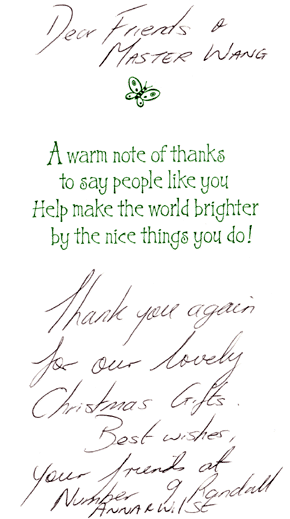 Dear Friends &
MASTER WANG
A warm note of thanks
to say people like you
Help make the world brighter
by the nice things you do!
Thank you again
for our lovely
Christmas Gifts.
Best wishes,
your friends at
Number 9 Randall